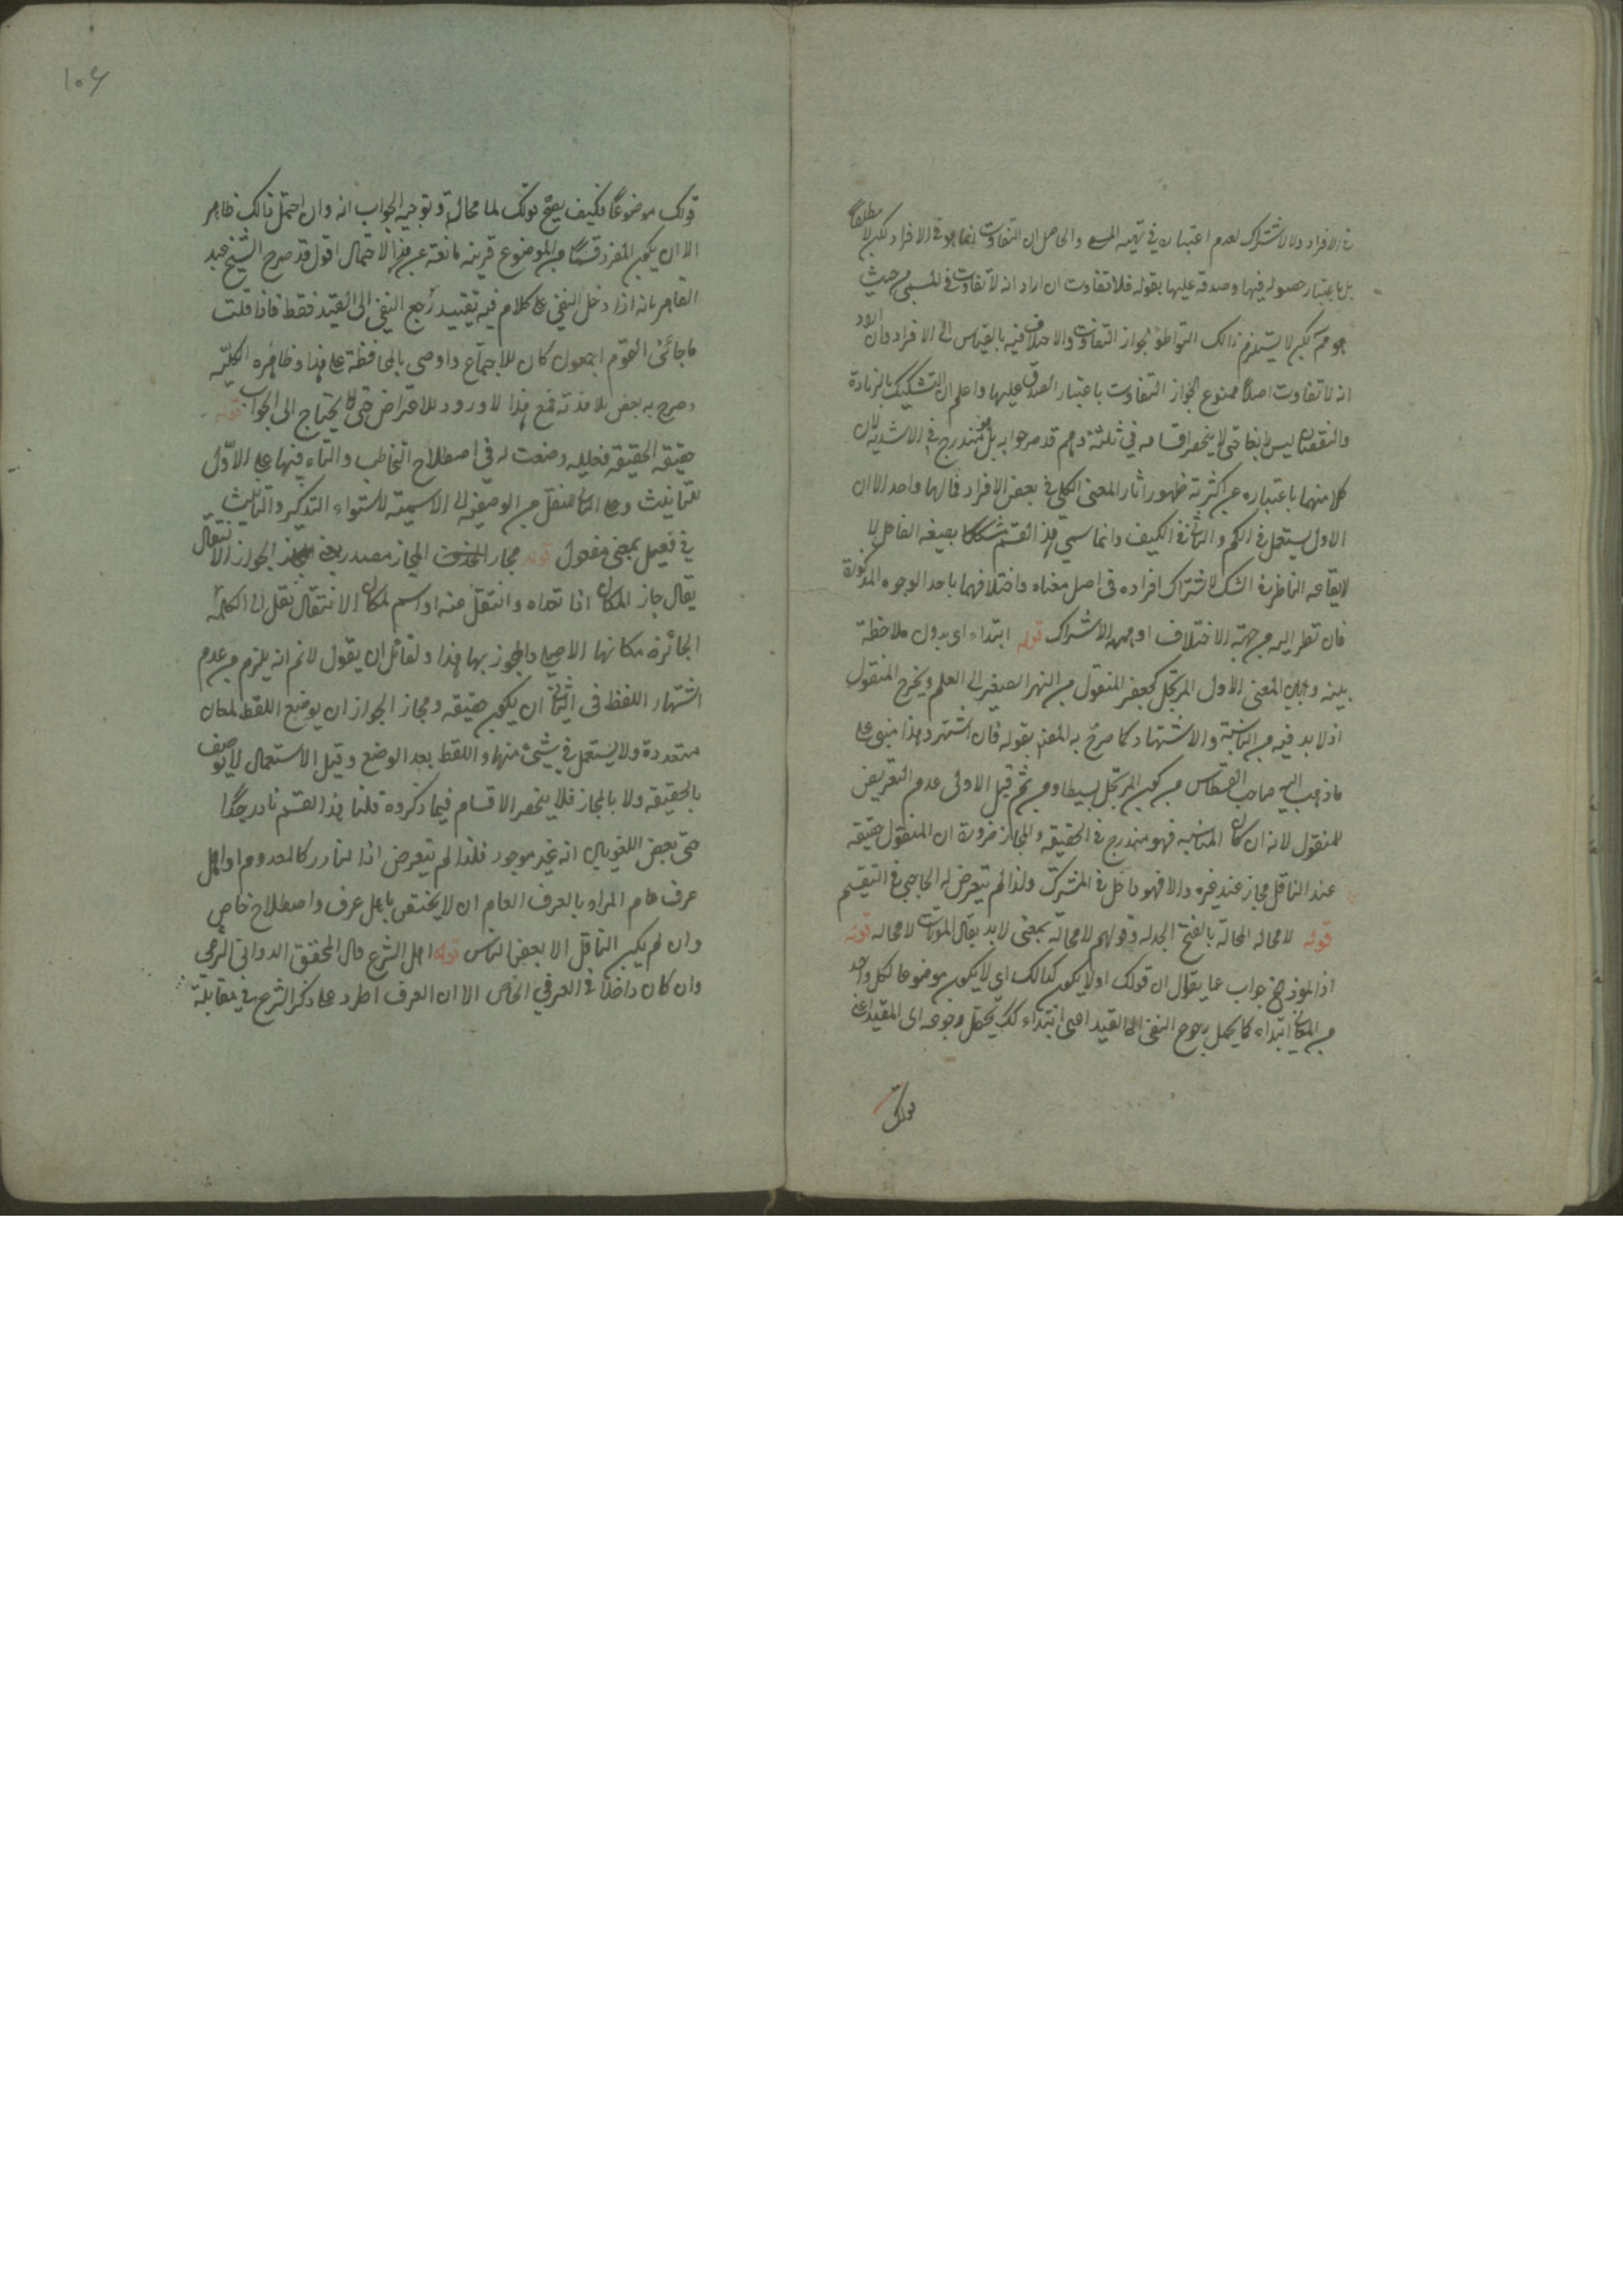 في الافراد ولا لاشتراك لعدم اعتباره في تهيه المسمى والحاصل ان التفاوت انما هو في الافراد لكن لا مطلقاً
بل باعتبار حصوله فيها وصدقه عليها بقوله فلا تفاوت ان اراد انه لا تفاوت في المسمى من حيث
هو هو لكن لا يستلزم ذالك التواطؤ لجواز التفاوت والاختلاف فيه بالقياس الى الافراد وان اراد
انه لا تفاوت اصلاً ممنوع لجواز التفاوت باعتبار الصدق عليها واعلم ان التشكيك بالزيادة
والنقصان ليس حتى لا ينحصر اقسامه في ثلثة وهم قد صرحوا به بل هو مندرج في الاشدية لان
كلا منهما باعتباره عن كثرته ظهور اثار المعنى الكلي في بعض الافراد فمالها واحد الا ان
الاول يستعمل في الكم والثاني في الكيف وانما سمي هذا القسم مشككا بصيغه الفاعل لا
لايقاعه الناظر في الشك لاشتراك افراده في اصل معناه واختلافهما باحد الوجوه المذكورة
فان نظر اليه من جهته الاختلاف او جهه الاشتراك قوله ابتداء اى بدون ملاحظة
بينه وبين المعنى الاول المرتجل كجعفر المنقول من النهر الصغير الى العلم ويخرج المنقول
اذ لا بد فيه من المناسبة والاشتهار كما صرح به المص بقوله فان اشتهر وهذا مبنى على
ما ذهب اليه صاحب القسطاس من كون المرتجل بسيطا ومن ثم قيل الاولى عدم التعريض
للمنقول لانه ان كان المناسبه فهو مندرج في الحقيقه والمجاز ضرورة ان المنقول حقيقه
عند الناقل مجاز عند غيره والا فهو داخل في المشترك ولذا لم يتعرض له الحاجبي في التقسيم
قوله لا محاله المحالة بالفتح الحيله وقولهم لا محالة بمعنى لا بد يقال الموت لا محاله قوله
اذ المفرد جواب عما يقال ان قولك او لا يكون كذالك اى لا يكون موضوعا لكل واحد
من المعاني ابتداء كما يحمل رجوع النفى الى القيد اعنى ابتداء كك يحتمل رجوعه الى المقيد اعنى
قولك
١٠٦
قولك موضوعاً فكيف يصح قولك لا محالة وتوجيه الجواب انه وان احتمل ذالك ظاهر
الا ان يكون المفرد قسماً من الموضوع قرينه مانعة عن هذا الاحتمال اقول قد صرح الشيخ عبد
القاهر بانه اذا دخل النفى على كلام فيه تقييد رجع النفى الى القيد فقط فاذا قلت
ما جائنى القوم اجمعون كان للاجتماع واوصى بالمحافظة على هذا وظاهره الكلية
وصرح به بعض تلامذته فمع هذا لا ورود للاعتراض حتى يحتاج الى الجواب قوله
حقيقه الحقيقة فعيله وضعت له في اصطلاح التخاطب والتاء فيها على الاول
للتانيث وعلى الثانى للنقل من الوصفيه الى الاسمية لاستواء التذكير والتانيث
في فعيل بمعنى مفعول قوله مجاز المجاز مصدر بمعنى الجواز الانتقال
يقال جاز المكان اذا تعداه وانتقل منه او اسم لمكان الانتقال نقل الى الكلمة
الجائزة مكانها الاصلى والمجوز بها هذا ولقائل ان يقول لانم انه يلزم من عدم
اشتهار اللفظ في الثانى ان يكون حقيقه ومجاز الجواز ان يوضع اللفظ لمعان
متعددة ولا يستعمل في شيئ منها واللفظ بعد الوضع وقبل الاستعمال لا يوصف
بالحقيقه ولا بالمجاز فلا ينحصر الاقسام فيما ذكروه قلنا هذا القسم نادر جدًا
حتى بعض اللغويين انه غير موجود فلذا لم يتعرض اذا النادر كالمعدوم او اهل
عرف عام المراد بالعرف العام ان لا يختص باهل عرف واصطلاح خاص
وان لم يكن الناقل الا بعض الناس قوله اهل الشرع قال المحقق الدواني الشرعى
وان كان داخلا في العرفي الخاص الا ان العرف اطرد على ذكر الشرع في مقابلة